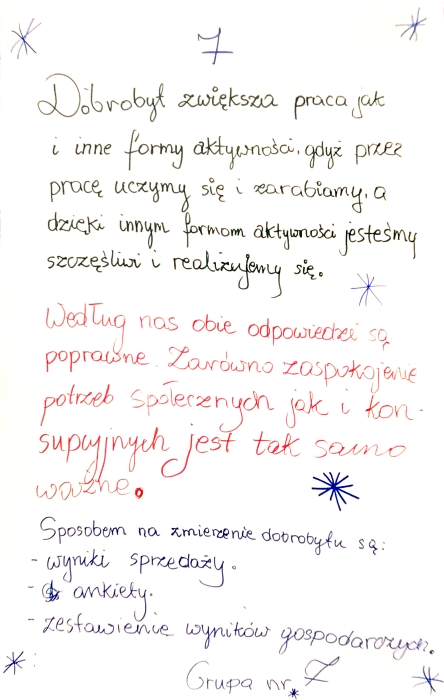 7
Dobrobyt zwiększa praca jak
i inne formy aktywności, gdyż przez
pracę uczymy się i zarabiamy, a
dzięki innym formom aktywności jesteśmy
szczęśliwi i realizujemy się.
Według nas obie odpowiedzi są
poprawne. Zarówno zaspokojenie
potrzeb społecznych jak i kon-
supcyjnych jest tak samo
ważne.
Sposobem na zmierzenie dobrobytu są:
- wyniki sprzedaży.
- ankiety.
- zestawienie wyników gospodarczych.
Grupa nr. 7